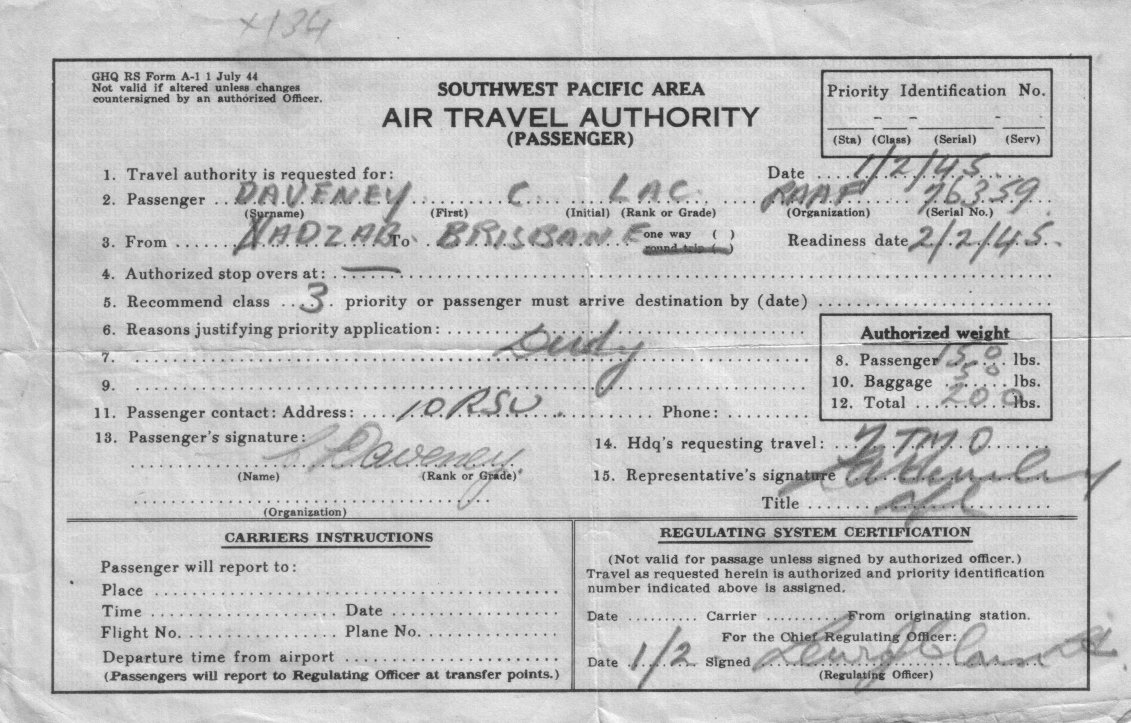 x134
GHQ RS Form A-1 1 July 44
Not valid if altered unless changes
countersigned by an authorized Officer.
SOUTHWEST PACIFIC AREA
AIR TRAVEL AUTHORITY
(PASSENGER)
Priority Identification No.
(Sta) (Class) (Serial) (Serv)
1. Travel authority is requested for: Date 1/2/45
2. Passenger DAVENEY C. LAC. RAAF 76359
(Surname) (First) (Initial) (Rank or Grade) (Organization) (Serial No.)
3. From NADZAB To BRISBANE one way ( ) round trip ( ) Readiness date 2/2/45
4. Authorized stop overs at: —
5. Recommend class 3 priority or passenger must arrive destination by (date)
6. Reasons justifying priority application:
7. Duty
9.
Authorized weight
8. Passenger 150 lbs.
10. Baggage 50 lbs.
12. Total 200 lbs.
11. Passenger contact: Address: 10 RSU Phone:
13. Passenger's signature:
C Daveney
(Name) (Rank or Grade)
(Organization)
14. Hdq's requesting travel: 7 TMO
15. Representative's signature
Title
CARRIERS INSTRUCTIONS
Passenger will report to:
Place
Time Date
Flight No. Plane No.
Departure time from airport
(Passengers will report to Regulating Officer at transfer points.)
REGULATING SYSTEM CERTIFICATION
(Not valid for passage unless signed by authorized officer.)
Travel as requested herein is authorized and priority identification
number indicated above is assigned.
Date Carrier From originating station.
For the Chief Regulating Officer:
Date 1/2 Signed
(Regulating Officer)